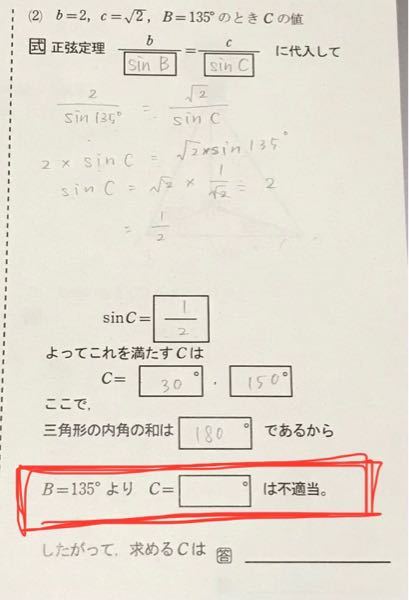 (2) b=2, c=√2, B=135°のときCの値
式 正弦定理 b/sin B = c/sin C に代入して
2/sin 135° = √2/sin C
2 × sin C = √2 × sin 135°
sin C = √2 × 1/√2 ÷ 2
= 1/2
sinC= 1/2
よってこれを満たすCは
C= 30°, 150°
ここで,
三角形の内角の和は 180° であるから
B=135°より C= ° は不適当。
したがって, 求めるCは 答